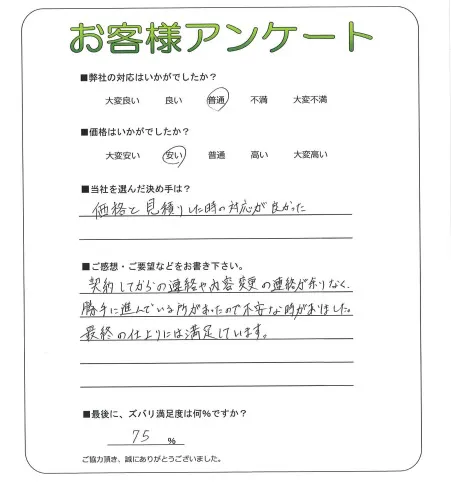 お客様アンケート
■弊社の対応はいかがでしたか？
大変良い 良い 普通 不満 大変不満
■価格はいかがでしたか？
大変安い 安い 普通 高い 大変高い
■当社を選んだ決め手は？
価格と見積りした時の対応が良かった
■ご感想・ご要望などをお書き下さい。
契約してからの連絡や内容変更の連絡が余りなく、
勝手に進んでいる所があったので不安な時がありました。
最終の仕上りには満足しています。
■最後に、ズバリ満足度は何％ですか？
75 %
ご協力頂き、誠にありがとうございました。